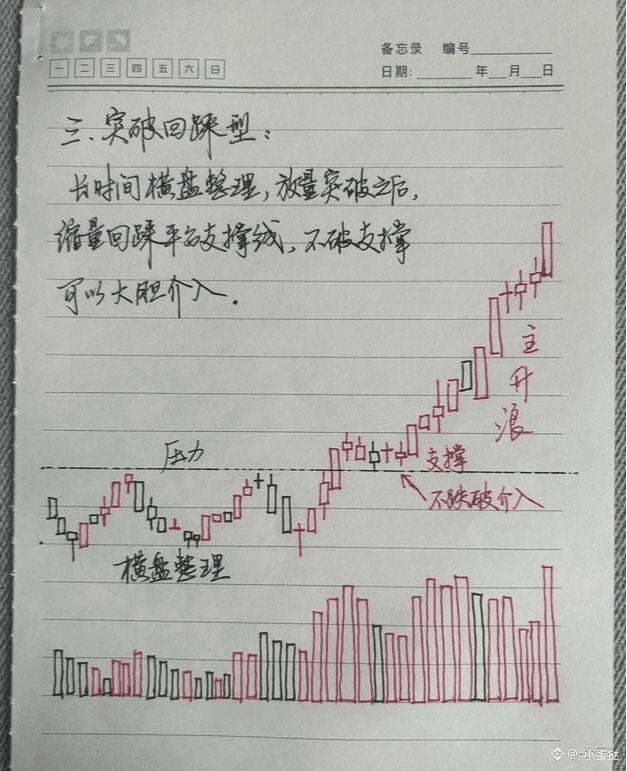 备忘录 编号
一 二 三 四 五 六 日
日期: 年 月 日
三、突破回踩型:
长时间横盘整理,放量突破之后,
缩量回踩平台支撑线,不破支撑
可以大胆介入.
主升浪
压力
支撑
不跌破介入
横盘整理
@-小蛋挞